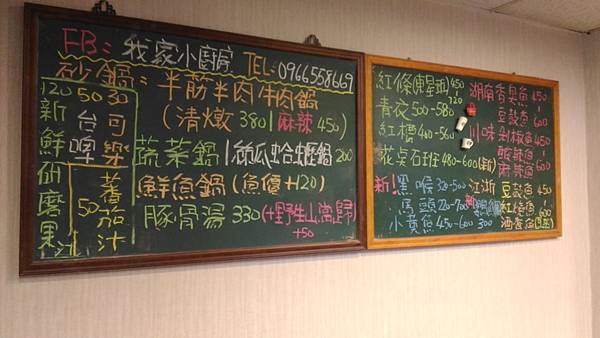 FB: 我家小廚房 TEL: 0966558669
砂鍋: 半筋半肉牛肉鍋
(清燉380|麻辣450)
蔬菜鍋|絲瓜蛤蠣鍋260
鮮魚鍋(魚價+120)
豚骨湯330(+野生山當歸)
+50
120新鮮研磨果汁
50台啤
30可樂
50蕃茄汁
紅條(東星斑)450
720
青衣500-580
紅槽460-560
花吳石班480-600(新)
新!黑喉320-500
馬頭220-700
小黃魚450-600 300
湖南香臭魚450
豆豉魚600
川味剁椒魚450
麻辣魚600
江浙豆豉魚450
紅燒魚600